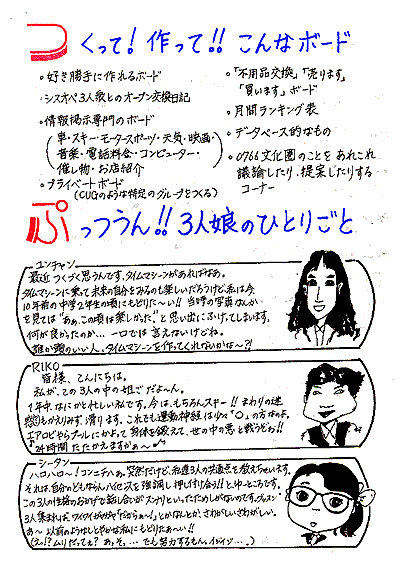 つくって! 作って!! こんなボード
・好き勝手に作れるボード
・シスオペ3人娘とのオープン交換日記
・情報掲示専門のボード
(車・スキー・モータースポーツ・天気・映画・
音楽・電話料金・コンピューター・
催し物・お店紹介)
・プライベートボード
(CUGのような特定のグループをつくる)
・「不用品交換」「売ります」
「買います」ボード
・月間ランキング表
・データベース的なもの
・0766文化圏のことをあれこれ
議論したり、提案したりする
コーナー
ぷっつうん!! 3人娘のひとりごと
ユンチャン
最近つくづく思うんです、タイムマシーンがあればなぁ。
タイムマシーンに乗って未来の自分をみるのも楽しいだろうけど私は今、
10年前の中学2年生の頃にもどりた〜い!! 当時の写真なんか
を見ては"あぁ、この頃は楽しかった"と思い出にふけってしまいます。
何が良かったのか… 一口では言えないけどね。
誰か頭のいい人、タイムマシーンを作ってくれないかな〜?!
RIKO
皆様、こんにちは。
私が、この3人の中の姐ごだよ〜ん。
1年中、なにかと忙しい私です。今は、もちろんスキー!! まわりの迷
惑もかえりみず、滑ります。これでも運動神経は少々"○"の方なのよ。
エアロビやらプールにかよって身体を鍛えて、世の中の悪と戦うぞぉ!!
♪24時間たたかえますかぁ〜♪
シータン
ハロハロ〜! コンニチハぁ。突然だけど、私達3人の共通点を教えちゃいます。
それは、自分のとんちんハイセンスを強調し押し切り合う!!とゆーところです。
この3人の性格のおかげで話し合いがスンナリといったためしがないのです。
3人集まれば、ワイワイガヤガヤ"だからぁ〜!"とかなんとか、さわがしいさわがしい。
あ〜以前のようなしとやかな私にもどりたぁ〜い!!
(えっ!? ムリだってぇ? あっそ。… でも努力するもん。イジイジ…。)